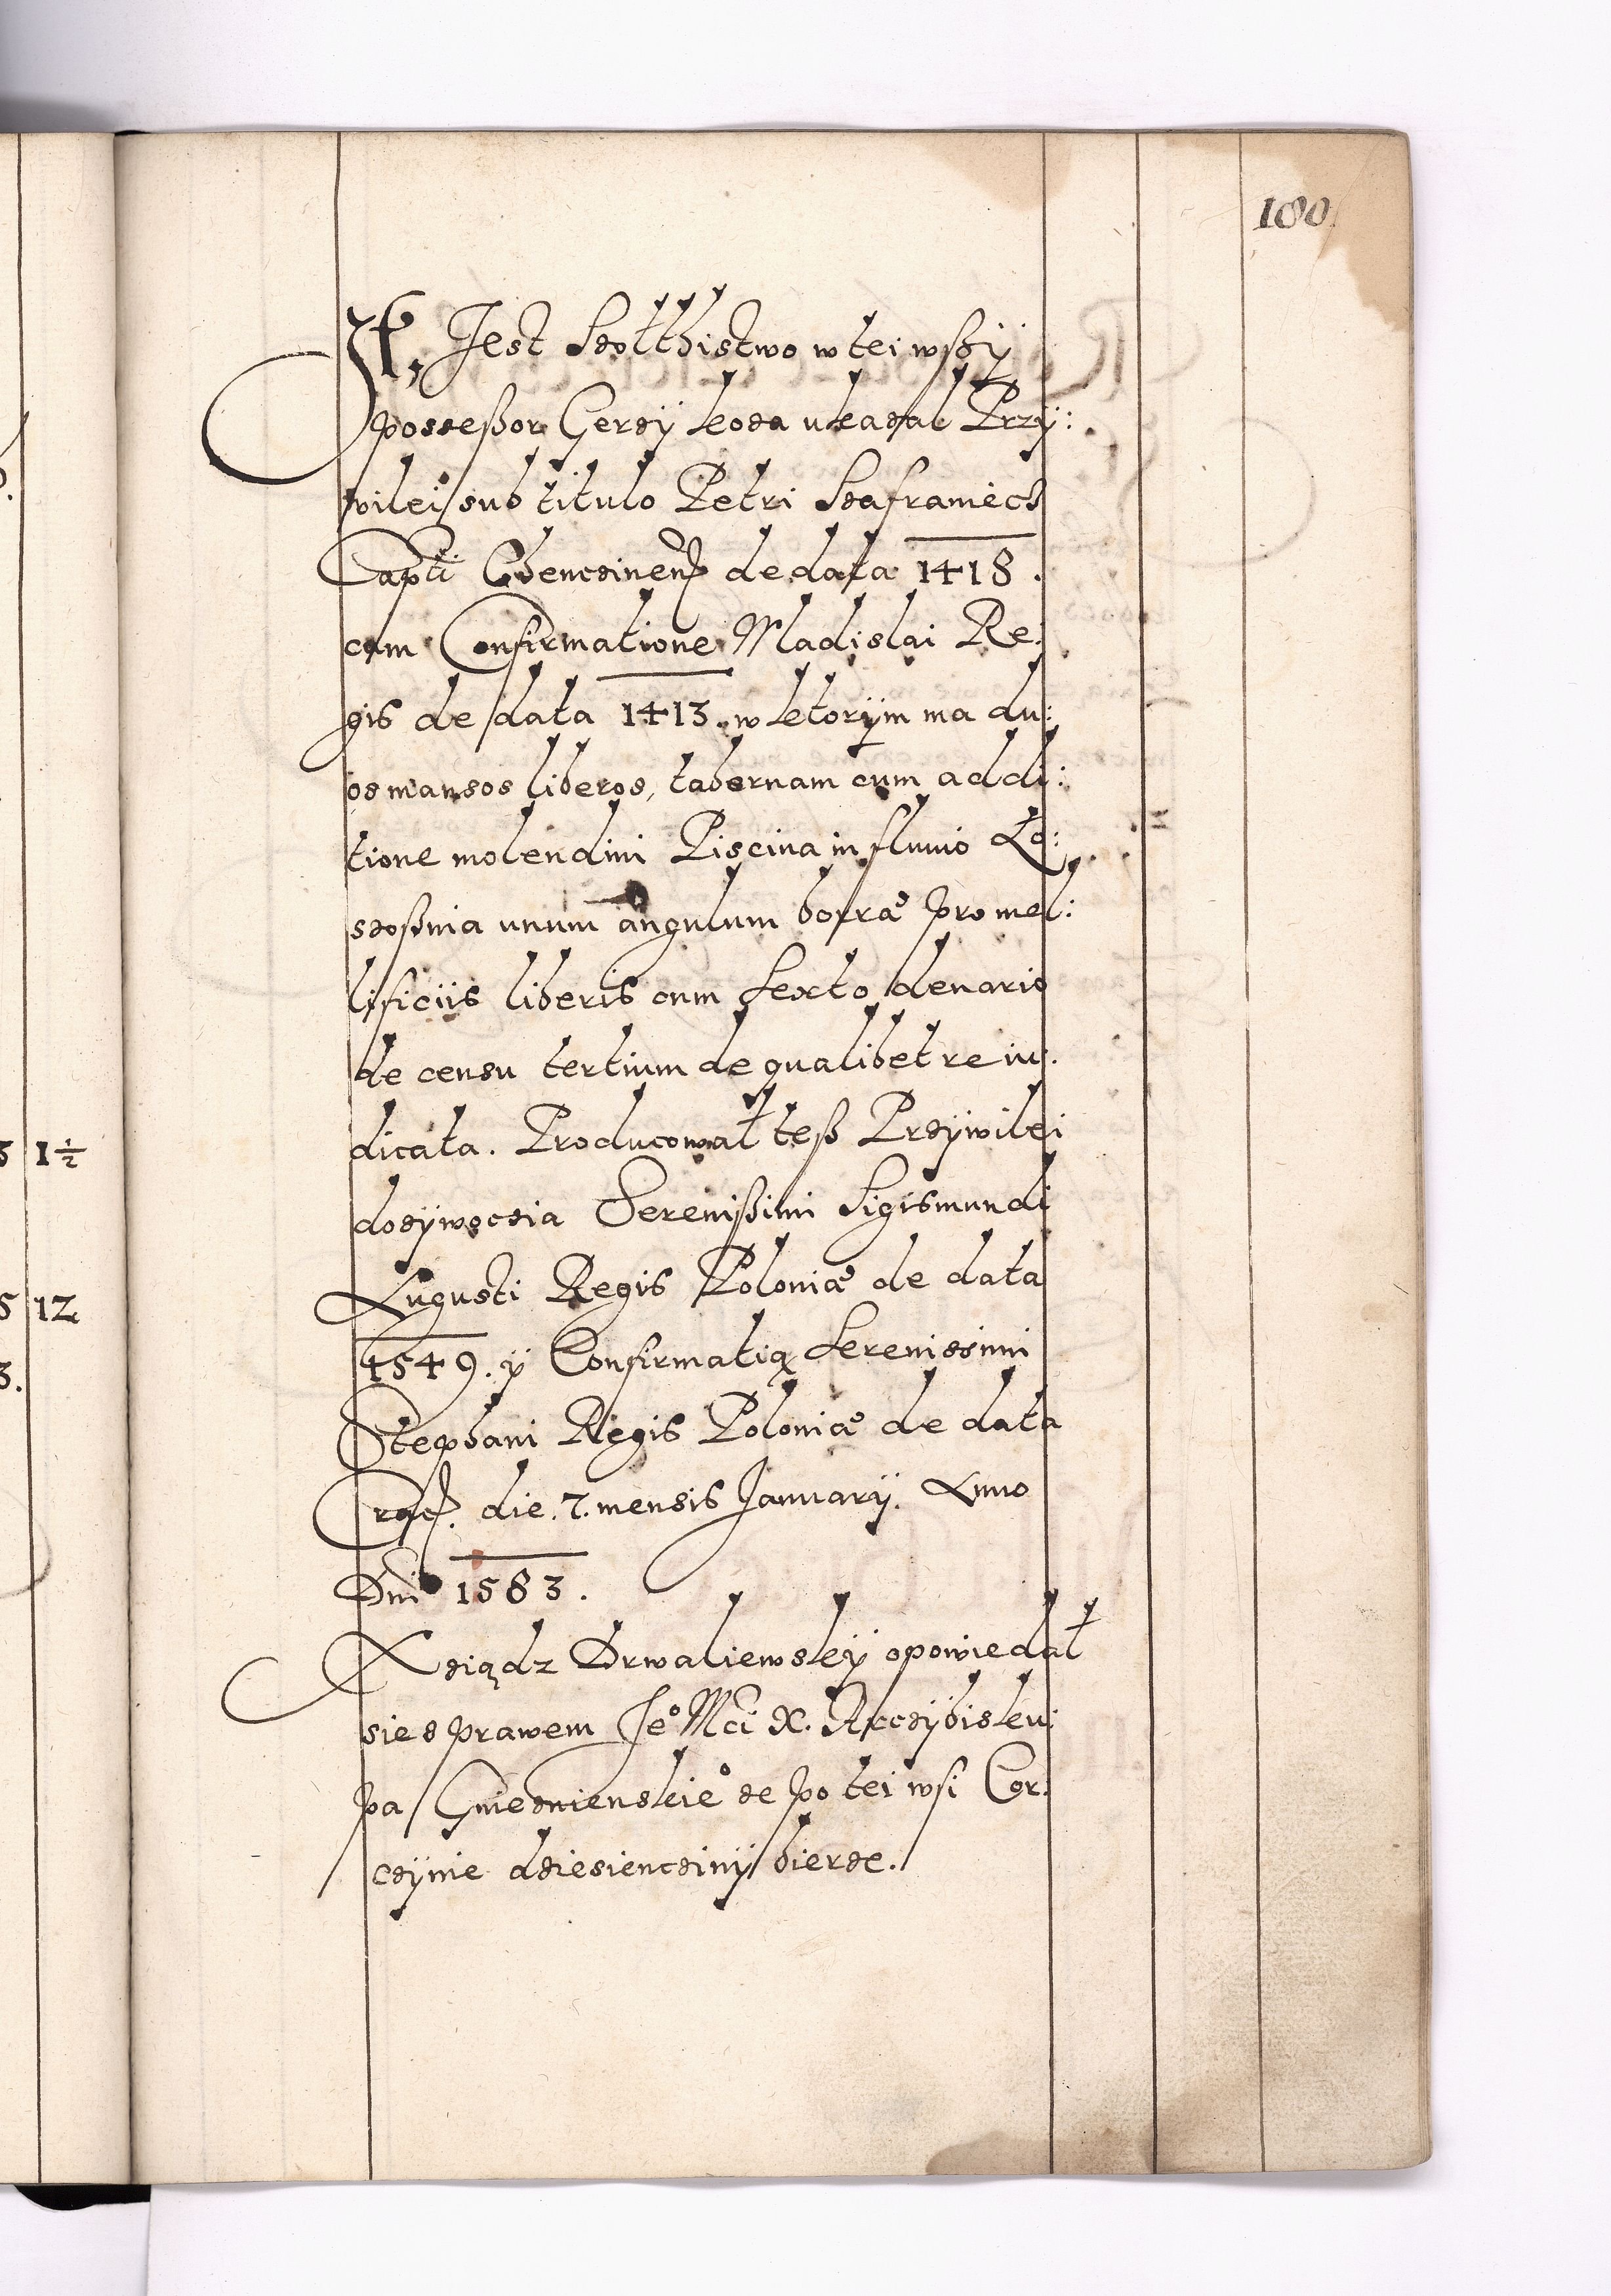 180
It. Jest Szolthistwo w tei wszÿ
possessor Gerzÿ koza ukazal Przÿ:
vilei sub titulo Petri Szafraniech
Capti Chencinen de data 1418.
cum Confirmatione Wladislai Re:
gis de data 1413. w ktorÿm ma du:
os mansos liberos, tabernam cum addi:
tione molendini Piscina in fluvio Lo:
szoßnia unum angulum borræ pro mel:
lificiis liberis cum Sexto denario
de censu tertium de qualibet re iu:
dicata. Producował teß Przÿwilei
dozÿwoczia Serenißimi Sigismundi
Augusti Regis Poloniæ de data
1549. ÿ Confirmatią Serenissimi
Stephani Regis Poloniæ de data
Crac. die. 7. mensis Januarÿ. Anno
Dni 1583.
Xsiądz Drwaliewskÿ opowiedał
sie s prawem Je° Mci X. Arczÿbisku:
pa Gnieznienskie° ze po tei wsi Cor:
czÿnie dziesiencziny bierze.
5 1½
5 12
3.